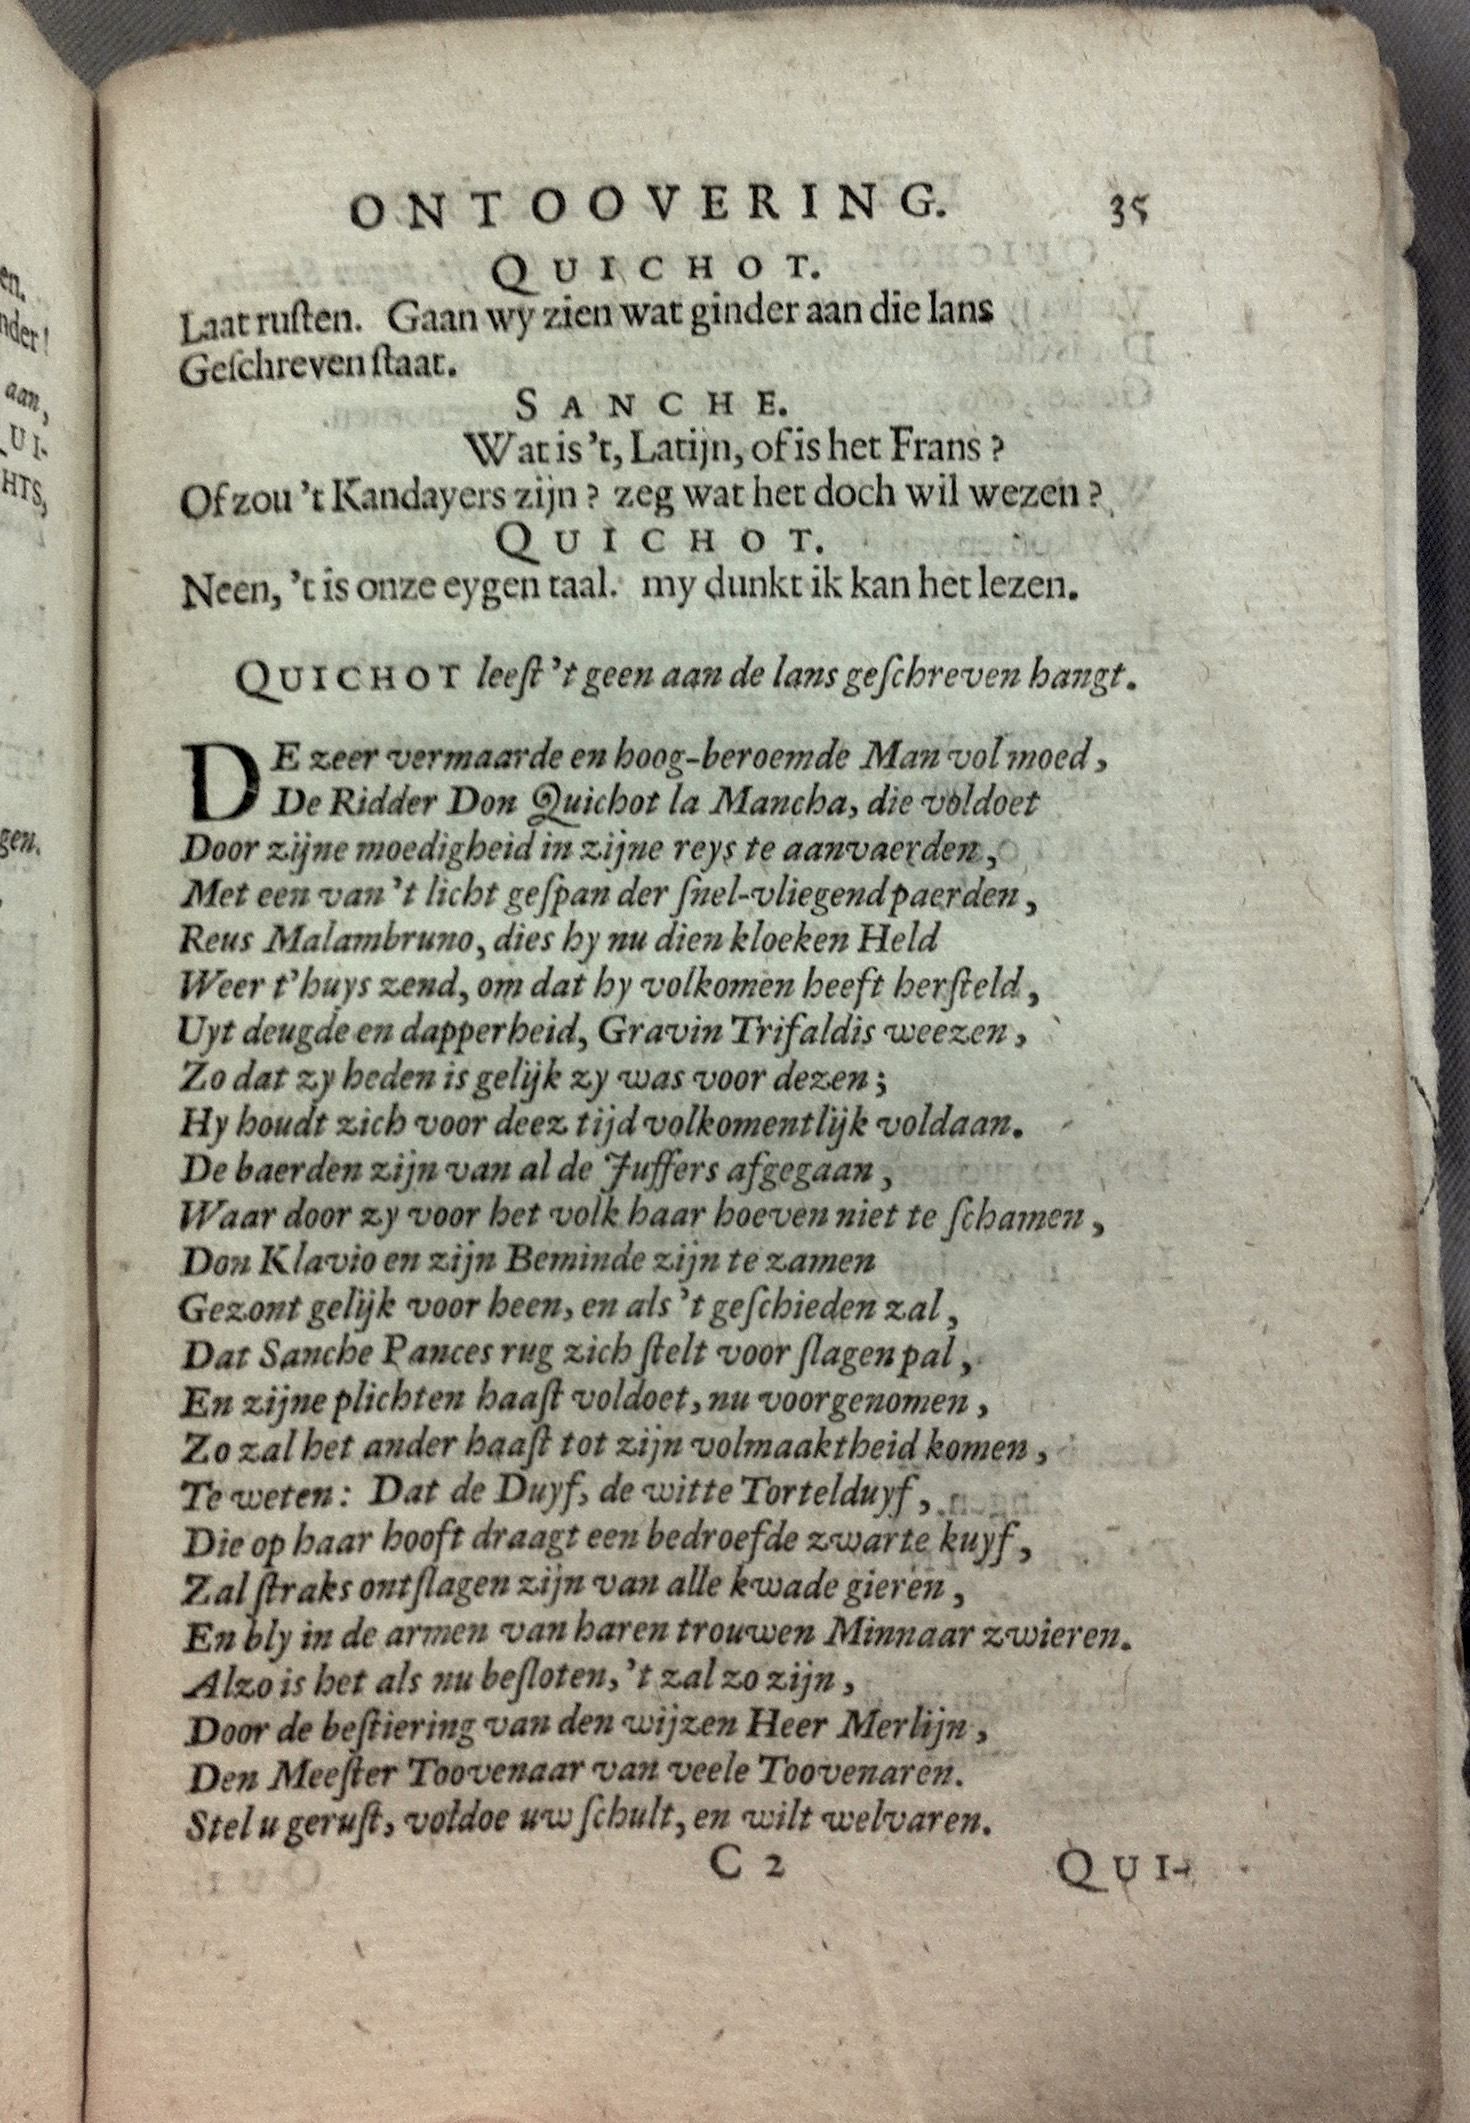 en.
nder!
aan,
QUI-
HTS,
gen.
ONTOOVERING. 35
QUICHOT.
Laat ruſten. Gaan wy zien wat ginder aan die lans
Geſchreven ſtaat.
SANCHE.
Wat is 't, Latijn, of is het Frans?
Of zou 't Kandayers zijn? zeg wat het doch wil wezen?
QUICHOT.
Neen, 't is onze eygen taal. my dunkt ik kan het lezen.
QUICHOT leeſt 't geen aan de lans geſchreven hangt.
DE zeer vermaarde en hoog-beroemde Man vol moed,
De Ridder Don Quichot la Mancha, die voldoet
Door zijne moedigheid in zijne reys te aanvaerden,
Met een van 't licht geſpan der ſnel-vliegend paerden,
Reus Malambruno, dies hy nu dien kloeken Held
Weer t'huys zend, om dat hy volkomen heeft herſteld,
Uyt deugde en dapperheid, Gravin Trifaldis weezen,
Zo dat zy heden is gelijk zy was voor dezen;
Hy houdt zich voor deez tijd volkomentlijk voldaan.
De baerden zijn van al de Juffers afgegaan,
Waar door zy voor het volk haar hoeven niet te ſchamen,
Don Klavio en zijn Beminde zijn te zamen
Gezont gelijk voor heen, en als 't geſchieden zal,
Dat Sanche Pances rug zich ſtelt voor ſlagen pal,
En zijne plichten haaſt voldoet, nu voorgenomen,
Zo zal het ander haaſt tot zijn volmaaktheid komen,
Te weten: Dat de Duyf, de witte Tortelduyf,
Die op haar hooft draagt een bedroefde zwarte kuyf,
Zal ſtraks ontſlagen zijn van alle kwade gieren,
En bly in de armen van haren trouwen Minnaar zwieren.
Alzo is het als nu beſloten, 't zal zo zijn,
Door de beſtiering van den wijzen Heer Merlijn,
Den Meeſter Toovenaar van veele Toovenaren.
Stel u geruſt, voldoe uw ſchult, en wilt welvaren.
C 2 QUI-